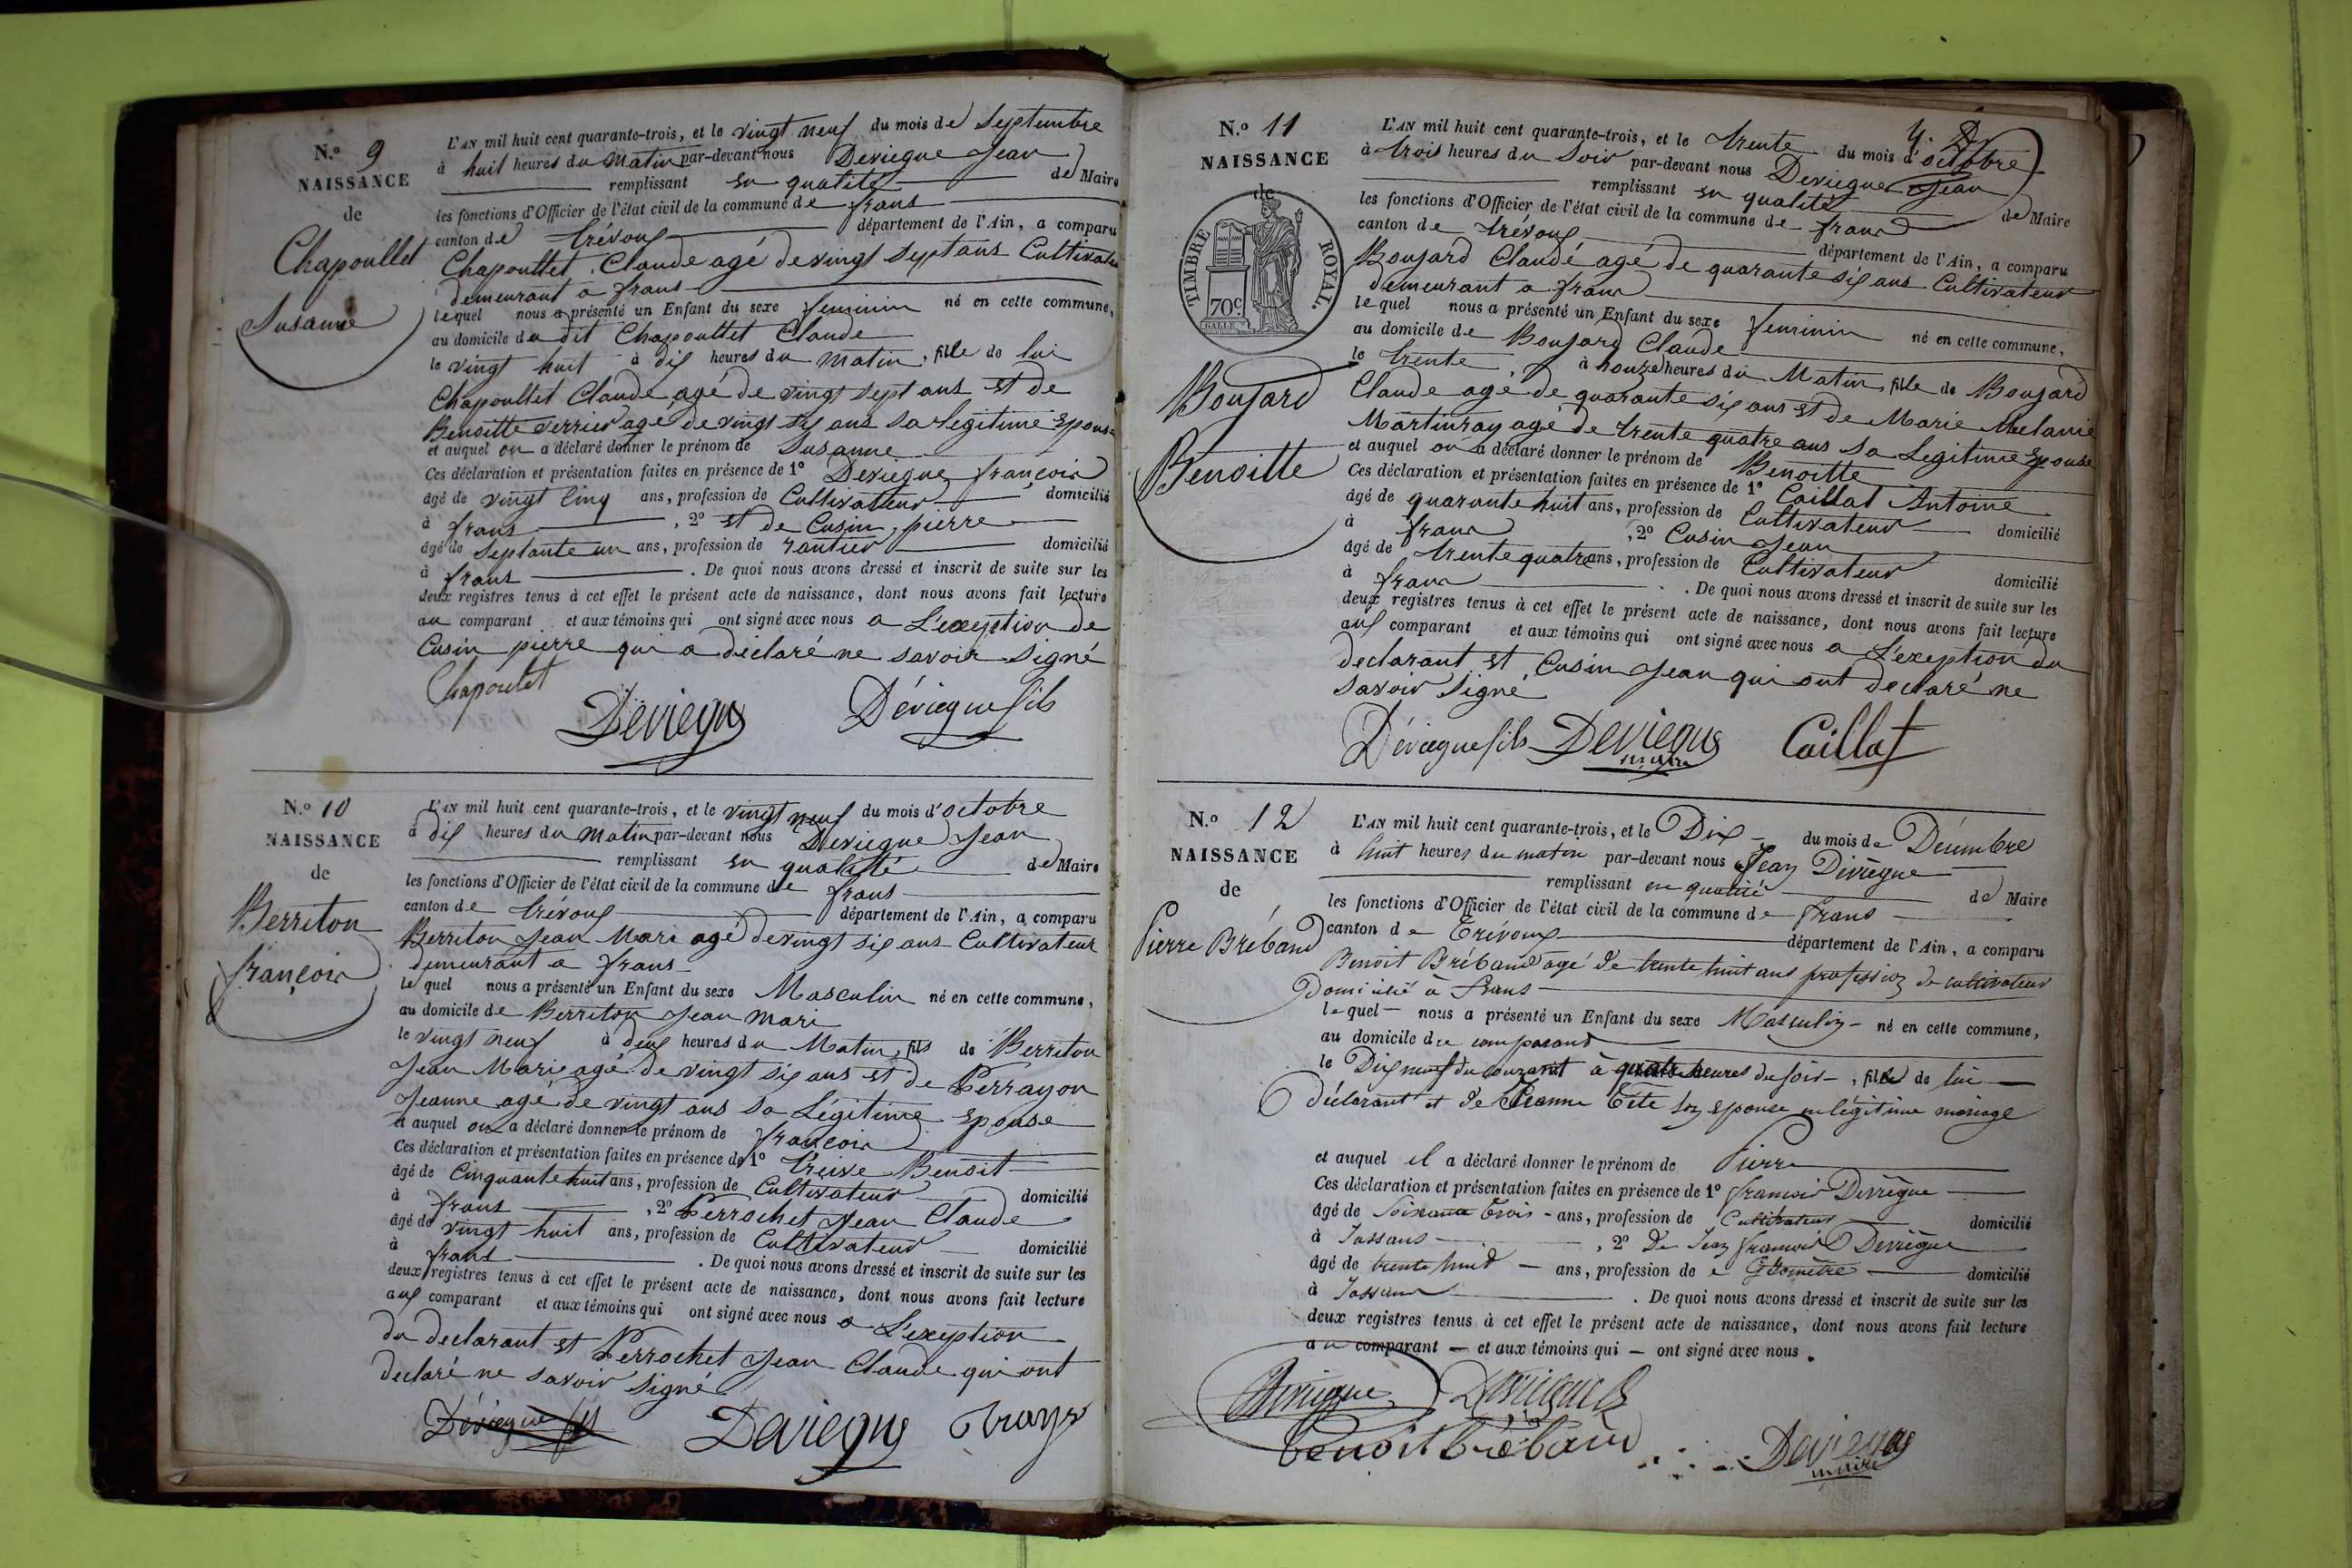 N.o 9
NAISSANCE
de
Chapoullet
Susanne
L'AN mil huit cent quarante-trois, et le vingt neuf du mois de Septembre
à huit heures du matin par-devant nous Deviegue Jean
remplissant en qualité de Maire
les fonctions d'Officier de l'état civil de la commune de frans
canton de trévoux département de l'Ain, a comparu
Chapoullet Claude agé de vingt sept ans Cultivateur
demeurant a frans
lequel nous a présenté un Enfant du sexe feminin né en cette commune,
au domicile du dit Chapoullet Claude
le vingt huit à dix heures du matin, fille de lui
Chapoullet Claude agé de vingt sept ans et de
Benoitte verrier agé de vingt six ans sa legitime Epouse
et auquel on a déclaré donner le prénom de Susanne
Ces déclaration et présentation faites en présence de 1o Deviegue françois
âgé de vingt cinq ans, profession de Cultivateur domicilié
à frans, 2o et de Cusin pierre
âgé de septante un ans, profession de rantier domicilié
à frans. De quoi nous avons dressé et inscrit de suite sur les
deux registres tenus à cet effet le présent acte de naissance, dont nous avons fait lecture
au comparant et aux témoins qui ont signé avec nous a L'exeption de
Cusin pierre qui a déclaré ne savoir signé
Chapoulet
Deviegue Déviegue fils
N.o 10
NAISSANCE
de
Berriton
françois
L'AN mil huit cent quarante-trois, et le vingt neuf du mois d'octobre
à dix heures du matin par-devant nous Deviegue Jean
remplissant en qualité de Maire
les fonctions d'Officier de l'état civil de la commune de frans
canton de trévoux département de l'Ain, a comparu
Berriton Jean Mari agé de vingt six ans Cultivateur
demeurant a frans
lequel nous a présenté un Enfant du sexe Masculin né en cette commune,
au domicile de Berriton Jean Mari
le vingt neuf à deux heures du Matin, fils de Berriton
Jean Marie agé de vingt six ans et de Perrayon
Jeanne agé de vingt ans sa Légitime Epouse
et auquel on a déclaré donner le prénom de françois
Ces déclaration et présentation faites en présence de 1o treive Benoit
âgé de Cinquante huit ans, profession de Cultivateur domicilié
à frans, 2o Perrochet Jean Claude
âgé de vingt huit ans, profession de Cultivateur domicilié
à frans. De quoi nous avons dressé et inscrit de suite sur les
deux registres tenus à cet effet le présent acte de naissance, dont nous avons fait lecture
aux comparant et aux témoins qui ont signé avec nous a L'exeption
du declarant et Perrochet Jean Claude qui ont
declaré ne savoir signé
Déviegue fils Deviegue
4.
N.o 11
NAISSANCE
de
TIMBRE ROYAL.
70c
GALLE
Boujard
Benoitte
L'AN mil huit cent quarante-trois, et le trente du mois d'octobre
à trois heures du Soir par-devant nous Deviegue Jean
remplissant en qualité de Maire
les fonctions d'Officier de l'état civil de la commune de frans
canton de trévoux département de l'Ain, a comparu
Boujard Claude agé de quarante six ans Cultivateur
demeurant a frans
lequel nous a présenté un Enfant du sexe feminin né en cette commune,
au domicile de Boujard Claude
le trente, à honze heures du Matin, fille de Boujard
Claude agé de quarante six ans et de Marie Melanie
Martinray agé de trente quatre ans sa Legitime Epouse
et auquel on a déclaré donner le prénom de Benoitte
Ces déclaration et présentation faites en présence de 1o Caillat Antoine
âgé de quarante huit ans, profession de Cultivateur domicilié
à frans, 2o Cusin Jean
âgé de trente quatre ans, profession de Cultivateur domicilié
à frans. De quoi nous avons dressé et inscrit de suite sur les
deux registres tenus à cet effet le présent acte de naissance, dont nous avons fait lecture
aux comparant et aux témoins qui ont signé avec nous a L'exeption du
declarant et Cusin Jean qui ont declaré ne
savoir signé
Déviegue fils Deviegue Caillat
maire
N.o 12
NAISSANCE
de
Pierre Bréband
L'AN mil huit cent quarante-trois, et le Dix du mois de Décembre
à huit heures du matin par-devant nous Jean Diviègue
remplissant en qualité de Maire
les fonctions d'Officier de l'état civil de la commune de frans
canton de Trévoux département de l'Ain, a comparu
Benoit Bréband agé de trente huit ans profession de cultivateur
Domicilié à frans
lequel nous a présenté un Enfant du sexe Masculin né en cette commune,
au domicile du comparant
le Dix neuf du courant à quatre heures du soir, fils de lui
Déclarant et de Jeanne Tête son epouse en légitime mariage
et auquel il a déclaré donner le prénom de Pierre
Ces déclaration et présentation faites en présence de 1o francois Deviègue
âgé de soixante trois ans, profession de Cultivateur domicilié
à Jassans, 2o De Jean francois Deviègue
âgé de trente huit ans, profession de Géomètre domicilié
à Jassans. De quoi nous avons dressé et inscrit de suite sur les
deux registres tenus à cet effet le présent acte de naissance, dont nous avons fait lecture
au comparant et aux témoins qui ont signé avec nous.
Deviegue
benoit bréband Deviegue
maire